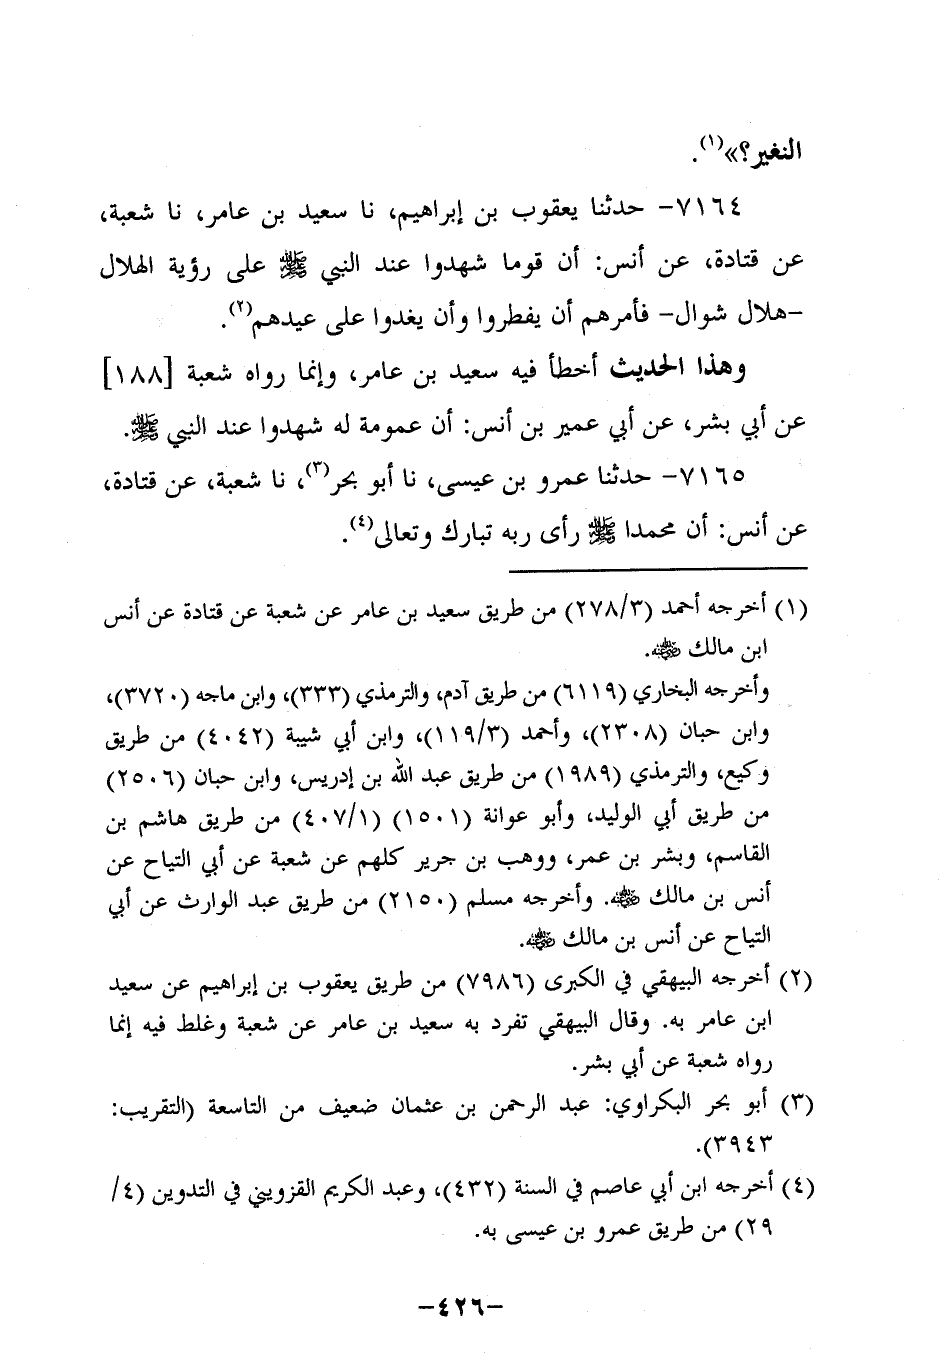 النغير؟»(١).
٧١٦٤- حدثنا يعقوب بن إبراهيم، نا سعيد بن عامر، نا شعبة،
عن قتادة، عن أنس: أن قوما شهدوا عند النبي ﷺ على رؤية الهلال
-هلال شوال- فأمرهم أن يفطروا وأن يغدوا على عيدهم(٢).
وهذا الحديث أخطأ فيه سعيد بن عامر، وإنما رواه شعبة [١٨٨]
عن أبي بشر، عن أبي عمير بن أنس: أن عمومة له شهدوا عند النبي ﷺ.
٧١٦٥- حدثنا عمرو بن عيسى، نا أبو بحر(٣)، نا شعبة، عن قتادة،
عن أنس: أن محمدا ﷺ رأى ربه تبارك وتعالى(٤).
(١) أخرجه أحمد (٢٧٨/٣) من طريق سعيد بن عامر عن شعبة عن قتادة عن أنس
ابن مالك ﷺ.
وأخرجه البخاري (٦١١٩) من طريق آدم، والترمذي (٣٣٣)، وابن ماجه (٣٧٢٠)،
وابن حبان (٢٣٠٨)، وأحمد (١١٩/٣)، وابن أبي شيبة (٤٠٤٢) من طريق
وكيع، والترمذي (١٩٨٩) من طريق عبد الله بن إدريس، وابن حبان (٢٥٠٦)
من طريق أبي الوليد، وأبو عوانة (١٥٠١) (٤٠٧/١) من طريق هاشم بن
القاسم، وبشر بن عمر، ووهب بن جرير كلهم عن شعبة عن أبي التياح عن
أنس بن مالك ﷺ. وأخرجه مسلم (٢١٥٠) من طريق عبد الوارث عن أبي
التياح عن أنس بن مالك ﷺ.
(٢) أخرجه البيهقي في الكبرى (٧٩٨٦) من طريق يعقوب بن إبراهيم عن سعيد
ابن عامر به. وقال البيهقي تفرد به سعيد بن عامر عن شعبة وغلط فيه إنما
رواه شعبة عن أبي بشر.
(٣) أبو بحر البكراوي: عبد الرحمن بن عثمان ضعيف من التاسعة (التقريب:
٣٩٤٣).
(٤) أخرجه ابن أبي عاصم في السنة (٤٣٢)، وعبد الكريم القزويني في التدوين (٤/
٢٩) من طريق عمرو بن عيسى به.
-٤٢٦-